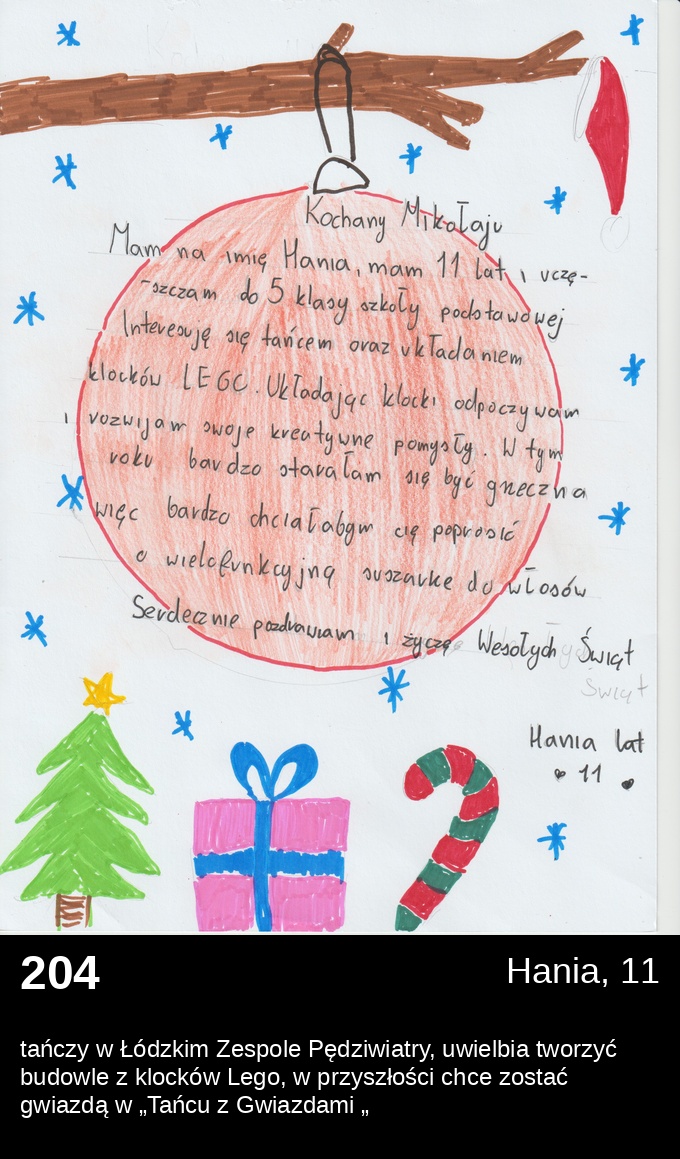 Kochany Mikołaju
Mam na imię Hania, mam 11 lat i uczę-
-szczam do 5 klasy szkoły podstawowej
Interesuję się tańcem oraz układaniem
klocków LEGO. Układając klocki odpoczywam
i rozwijam swoje kreatywne pomysły. W tym
roku bardzo starałam się być grzeczna
więc bardzo chciałabym cię poprosić
o wielofunkcyjną suszarkę do włosów
Serdecznie pozdrawiam i życzę Wesołych Świąt
Świąt
Hania lat
11
204
Hania, 11
tańczy w Łódzkim Zespole Pędziwiatry, uwielbia tworzyć
budowle z klocków Lego, w przyszłości chce zostać
gwiazdą w „Tańcu z Gwiazdami „